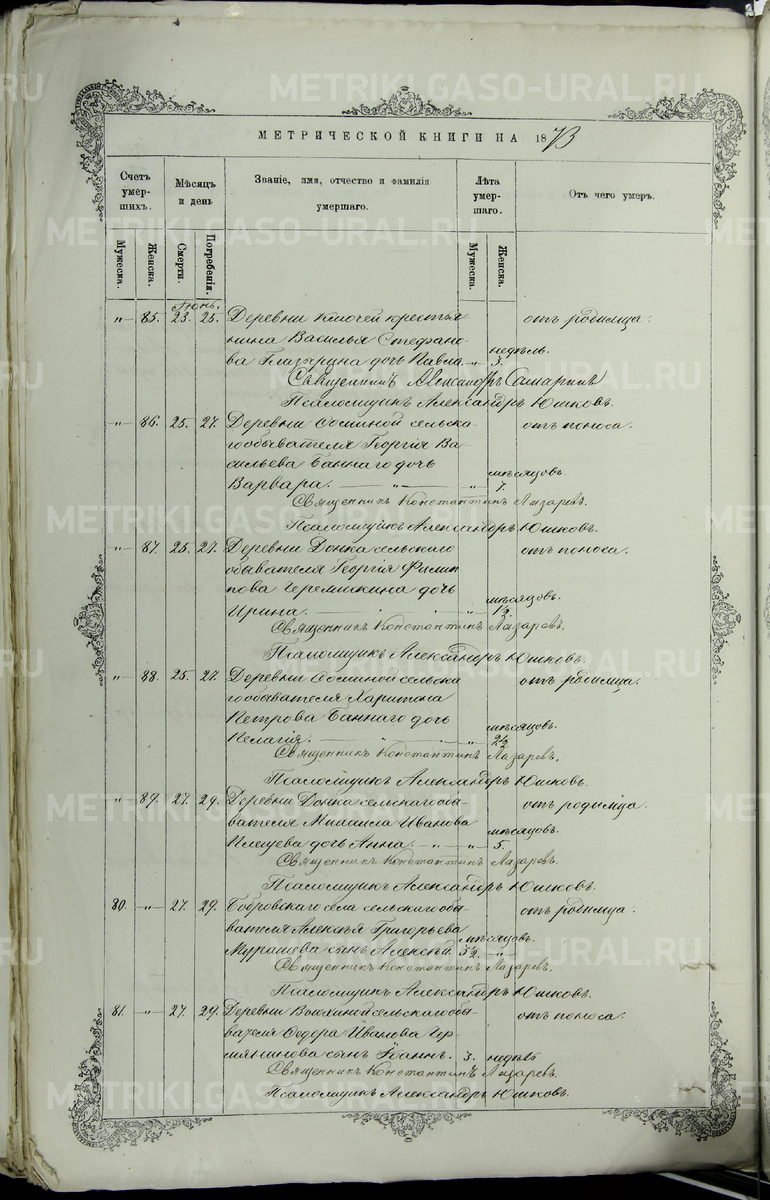 METRIKI.GASO-URAL.RU
МЕТРИЧЕСКОЙ КНИГИ НА 1873
Счетъ умер- шихъ.
Мѣсяцъ и день
Званіе, имя, отчество и фамилія умершаго.
Лѣта умер- шаго.
Отъ чего умеръ.
Мужеска.
Женска.
Смерти.
Погребенія.
Мужеска.
Женска.
Іюнь.
„ 85. 23. 25. Деревни Ключей крестья отъ родимца.
нина Василья Стефано-
ва дочь Павла. „ недѣль. 3.
Священникъ Александръ Самаринъ
Псаломщикъ Александръ Юшковъ.
„ 86. 25. 27. Деревни сельска отъ поноса.
гообывателя Георгія Ва-
сильева Баннаго дочь мѣсяцовъ.
Варвара. „ „ 7.
Священникъ Константинъ Лазаревъ.
Псаломщикъ Александръ Юшковъ.
„ 87. 25. 27. Деревни сельскаго отъ поноса.
обывателя Георгія Филип
пова Черемискина дочь мѣсяцовъ.
Ирина. „ 1½.
Священникъ Константинъ Лазаревъ.
Псаломщикъ Александръ Юшковъ.
„ 88. 25. 27. Деревни сельска отъ родимца.
гообывателя Харитона
Петрова Баннаго дочь мѣсяцовъ.
Пелагія. „ 2½
Священникъ Константинъ Лазаревъ.
Псаломщикъ Александръ Юшковъ.
„ 89. 27. 29. Деревни сельскаго обы- отъ родимца.
вателя Михаила Иванова мѣсяцовъ.
Плещева дочь Анна. „ „ 5.
Священникъ Константинъ Лазаревъ.
Псаломщикъ Александръ Юшковъ.
80. „ 27. 29. Бобровскаго села сельскаго обы- отъ родимца.
вателя Алексѣя Григорьева мѣсяцовъ.
Мурашева сынъ Алексѣй. 5½ „
Священникъ Константинъ Лазаревъ.
Псаломщикъ Александръ Юшковъ.
81. „ 27. 29. Деревни Вьюхиной сельскаго обы- отъ поноса.
вателя Ѳедора Иванова
сынъ Іоаннъ. 3. недѣль
Священникъ Константинъ Лазаревъ.
Псаломщикъ Александръ Юшковъ.